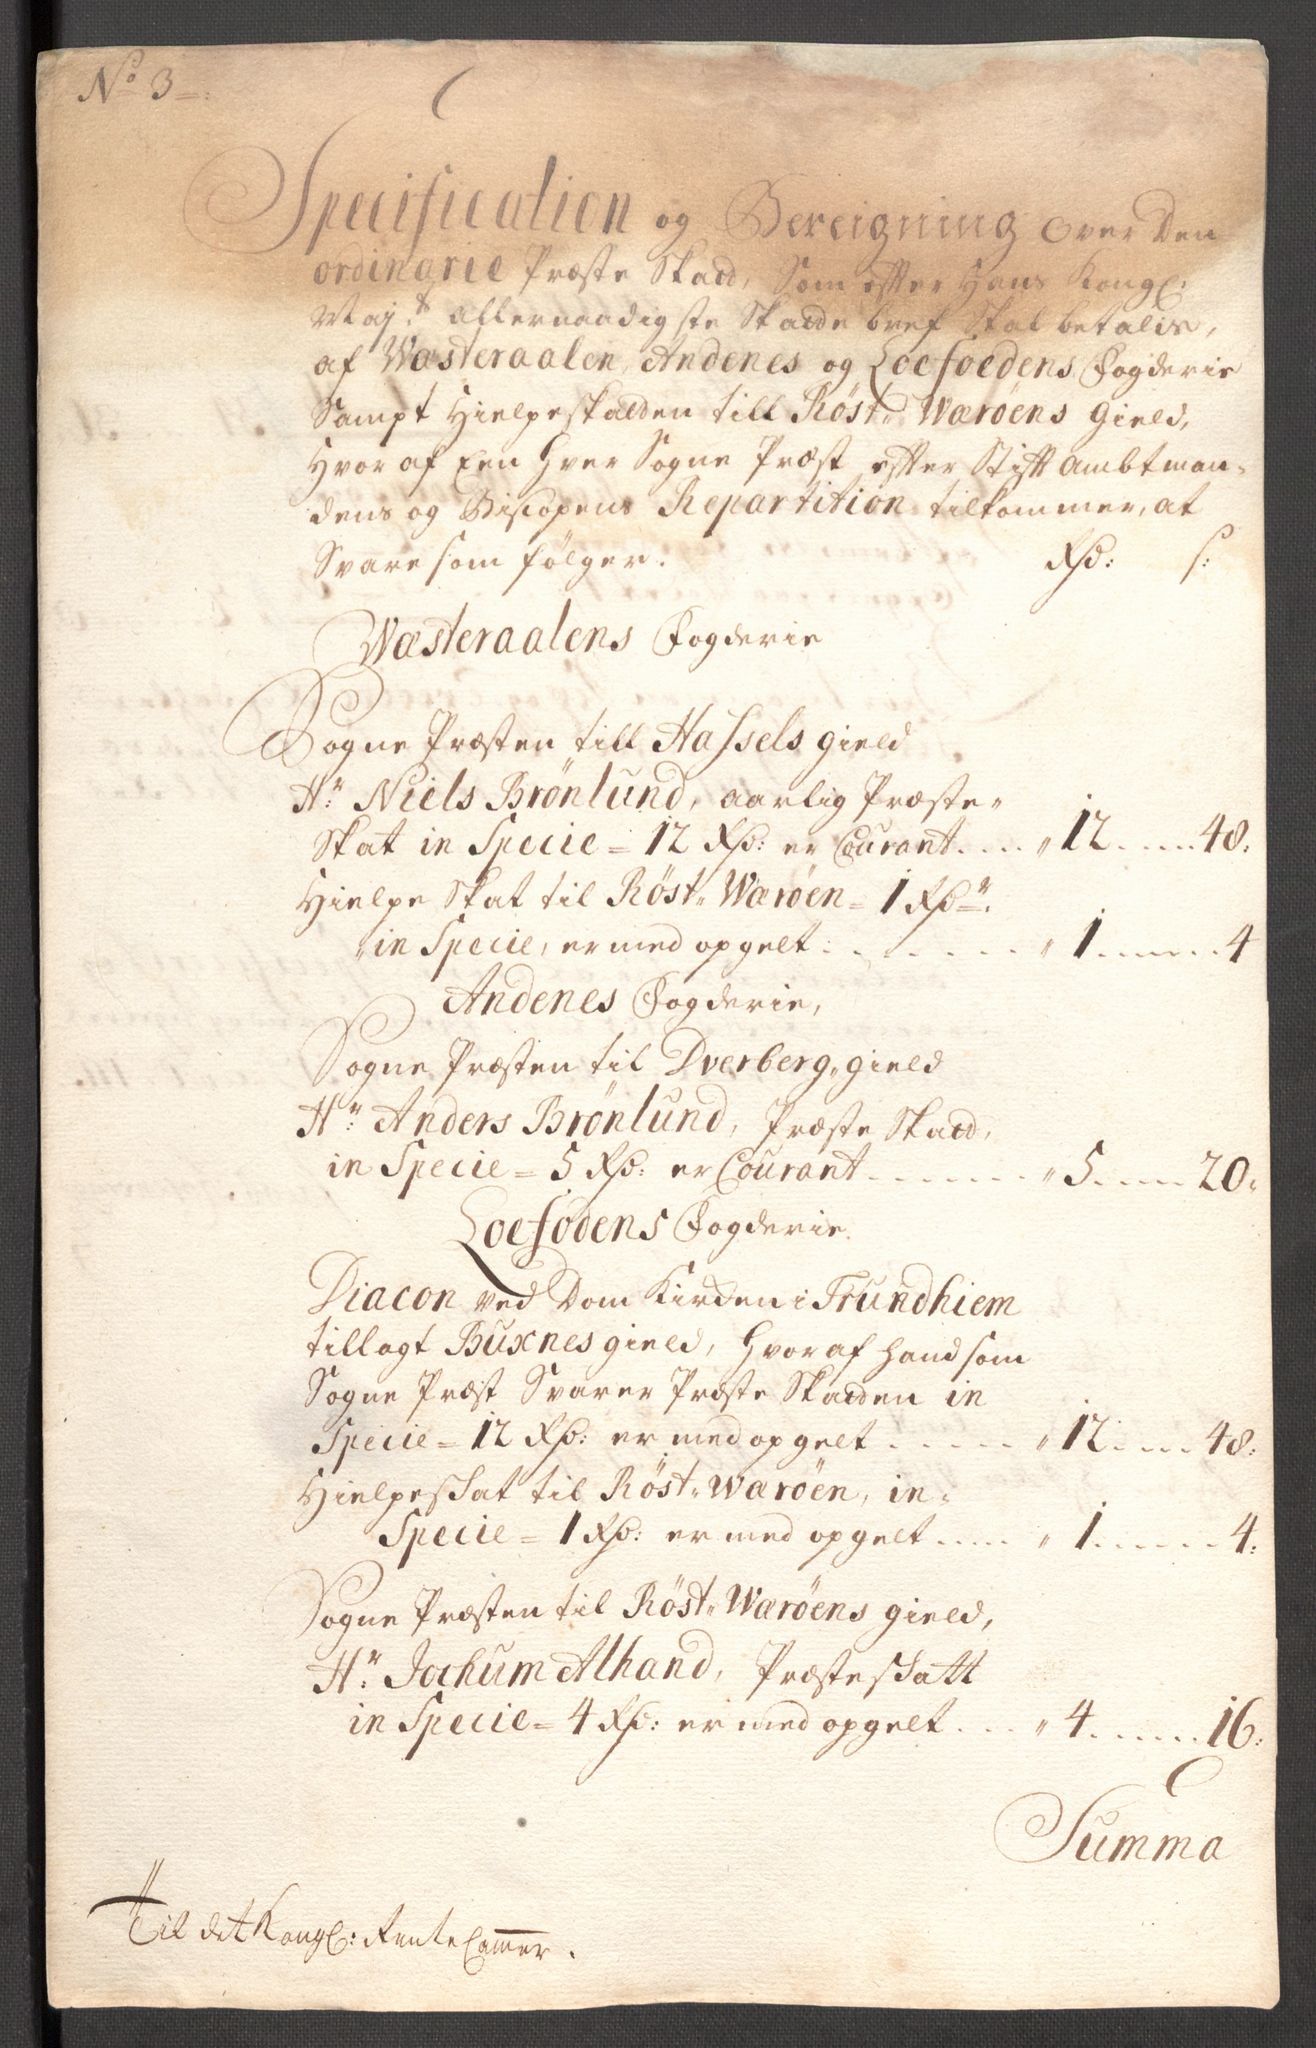 No 3
Specification og Bereigning over Den
ordinarie Præste Skad, Som effter Hans Kongl:
May:ts allernaadigste Skadebref Skal betalis,
af Wæsteraalen, Andenes og Loefoedens Fogderie
Sampt Hielpeskatden till Røst= Wærøens gield,
Hvor af Een hver Sogne Præst effter Stifft Ambtman=
dens og Biscopens Repartition tilkommer, at
Svare som følger. Rd: s:
Wæsteraalens Fogderie
Sogne Præsten till Hassels gield
Hr: Niels Brønlund, aarlig Præste=
Skat in Specie = 12 Rd: er Courant .... " 12 .... 48:
Hielpe Skat til Røst= Wærøen = 1 Rdr:
in Specie, er med opgelt ...... " 1 ..... 4
Andenes Fogderie,
Sogne Præsten til Dverberg, gield
Hr: Anders Brønlund, Præste Skad,
in Specie = 5 Rd: er Courant ...... " 5 .... 20:
Loefodens Fogderie
Diacon ved Dom Kirken i Trundhiem
tillagt Buxnes gield, hvoraf hand som
Sogne Præst Svarer Præste Skatden in
Specie = 12 Rd: er med opgelt ..... " 12 .... 48:
Hielpeskat til Røst= Wærøen, in=
Specie = 1 Rd: er med opgelt .... " 1 ..... 4:
Sogne Præsten til Røst= Wærøens gield,
Hr: Jochum Alhand, Præsteskatt
in Specie = 4 Rd: er med opgelt ... " 4 ..... 16:
Summa
Til det Kongl: Rente Cammer.